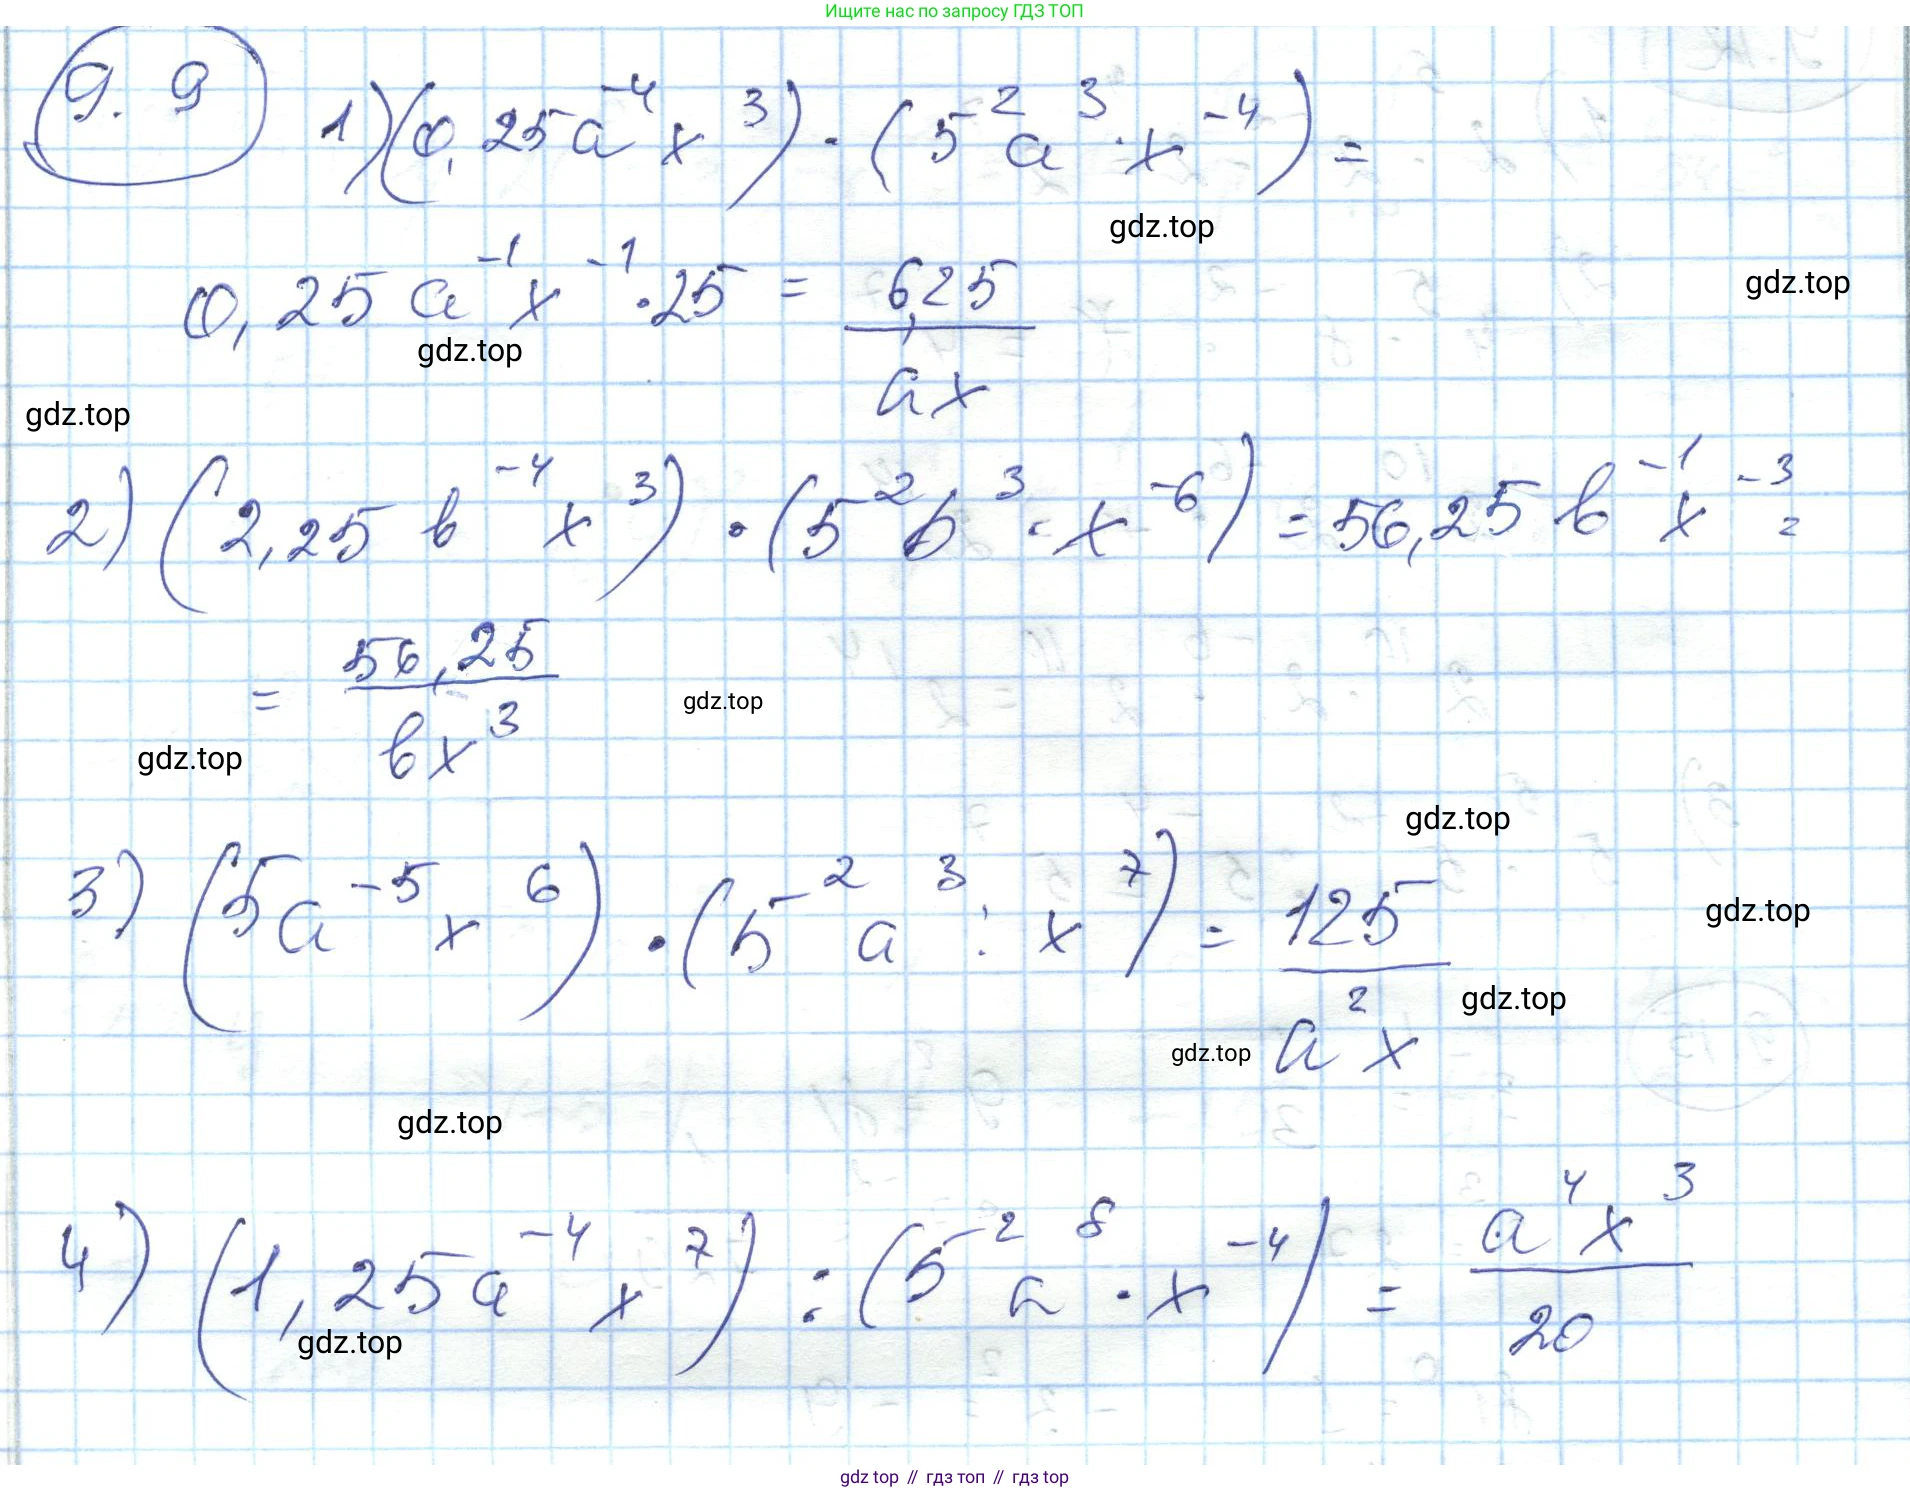 Ищите нас по запросу ГДЗ ТОП
9.9 1) (0,25a⁻⁴x³) · (5²a³ · x⁻⁴) =
gdz.top
0,25 a⁻¹x⁻¹ · 25 = 6,25/ax
gdz.top
gdz.top
gdz.top
2) (2,25 b⁻⁴x³) · (5²b³ · x⁻⁶) = 56,25 b⁻¹x⁻³ =
= 56,25/bx³
gdz.top
gdz.top
gdz.top
3) (5a⁻⁵x⁶) · (5²a³ : x⁷) = 125/a²x
gdz.top
gdz.top
gdz.top
gdz.top
4) (1,25a⁻⁴x⁷) : (5⁻²a⁸ · x⁻⁴) = a⁴x³/20
gdz.top
gdz.top // гдз топ // гдз top